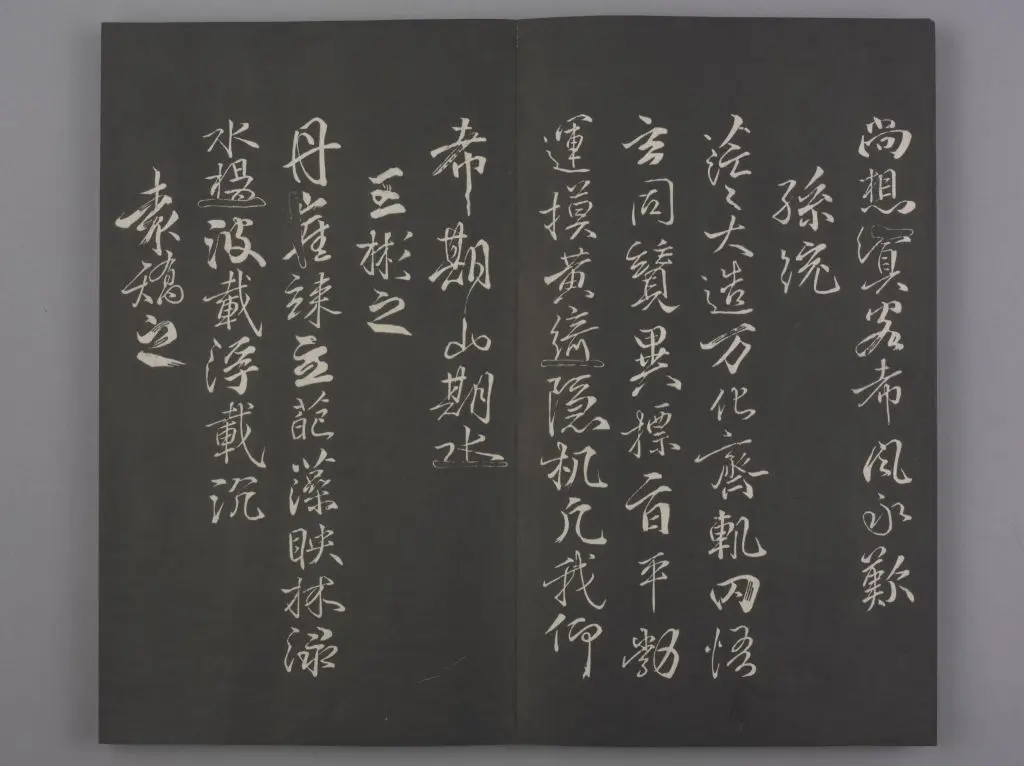 尚想冥容希風永歎
孫統
茫々大造万化齊軌罔悟
玄同競異摽旨平勃
運摸黃綺隱机凡我仰
希期山期水
王彬之
丹崖竦立葩藻映林淥
水揚波載浮載沉
袁嶠之